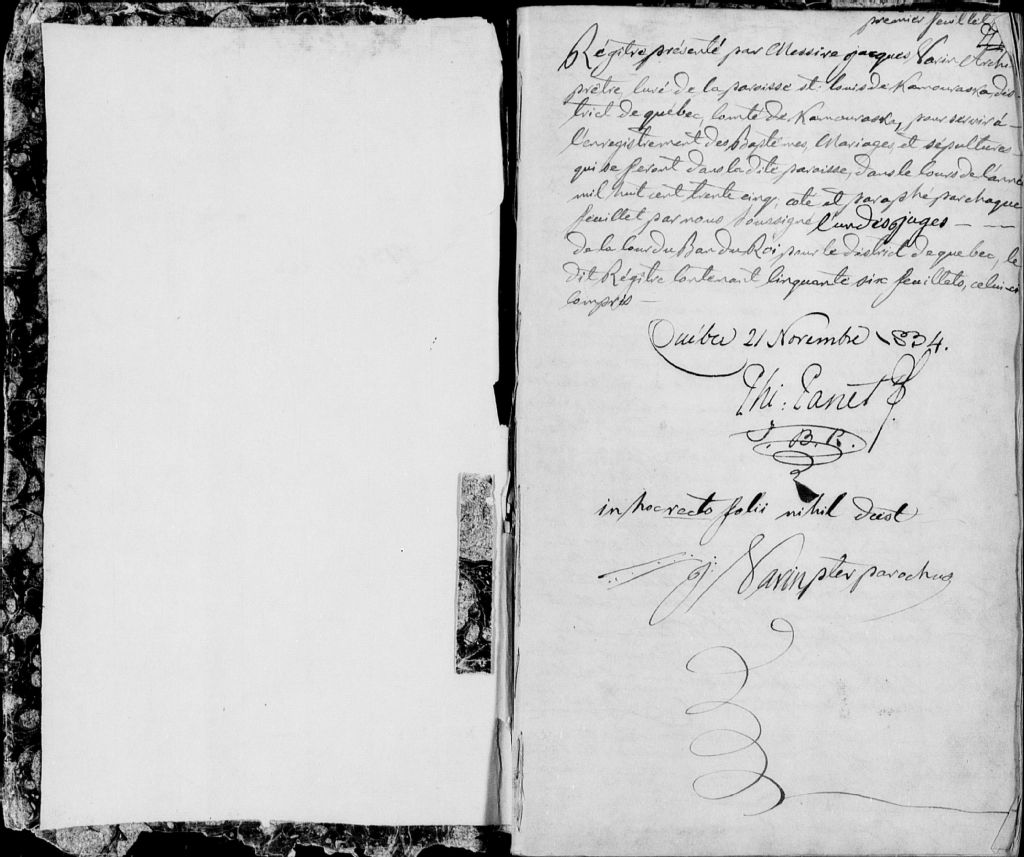 premier feuillet
Régitre présenté par Messire jacques Varin Archi
prêtre, Curé de la paroisse st. Louis de Kamouraska, dis
trict de québec, Comté de Kamouraska, pour servir à
l'enregistrement des Baptêmes, Mariages, et sépultures
qui se feront dans la dite paroisse, dans le Cours de l'année
mil huit cent trente cinq; coté et paraphé par chaque
feuillet par nous soussigné l'un des juges
de la Cour du Ban du Roi pour le district de quebec, le
dit Régitre Contenant Cinquante six feuillets, celui-ci
Compris
Québec 21 Novembre 1834.
Phi: Panet
J. B. R.
in hoc recto folii nihil deest
J Varin pter parochus